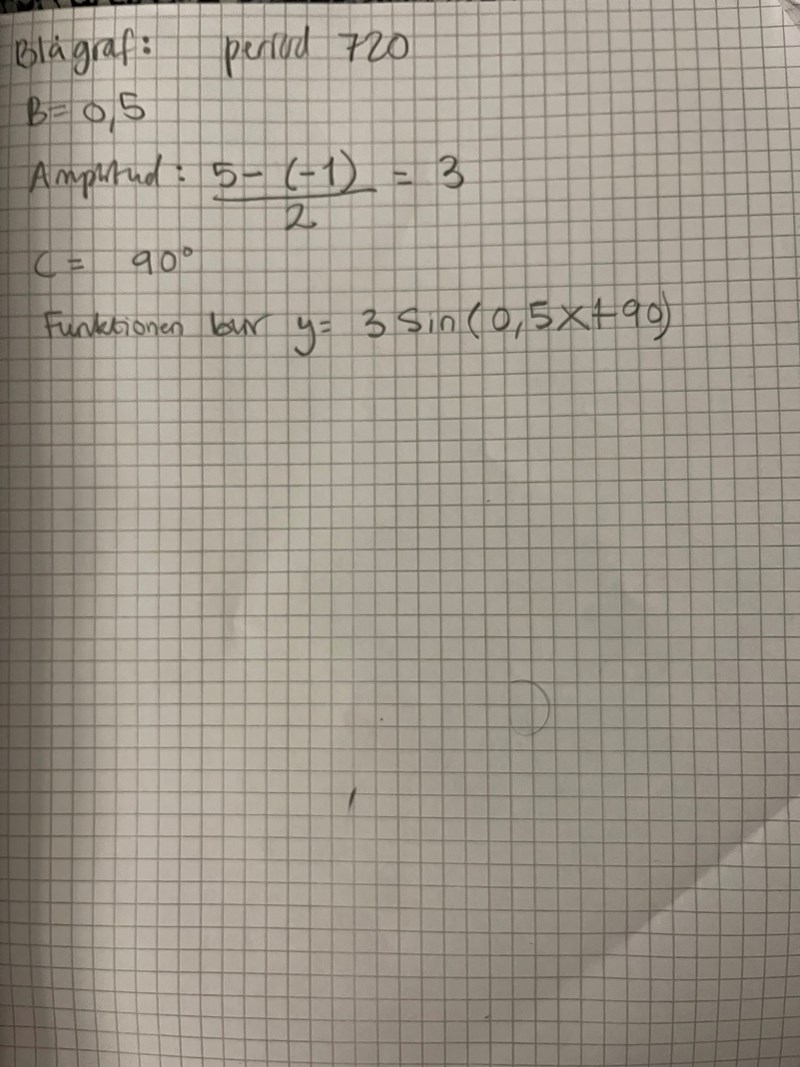 Blågraf: period 720
B= 0,5
Amplitud: 5-(-1)/2 = 3
C= 90°
Funktionen blir y= 3 sin(0,5x+90)